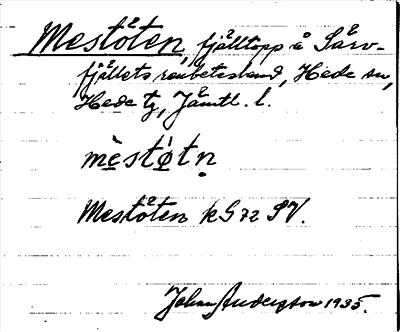 Mestöten, fjälltopp å Särv-
fjällets renbetesland, Hede sn,
Hede tg, Jämtl. l.
mèstö́tn̥
Mestöten kS 72 SV.
Johan Andersson 1935.